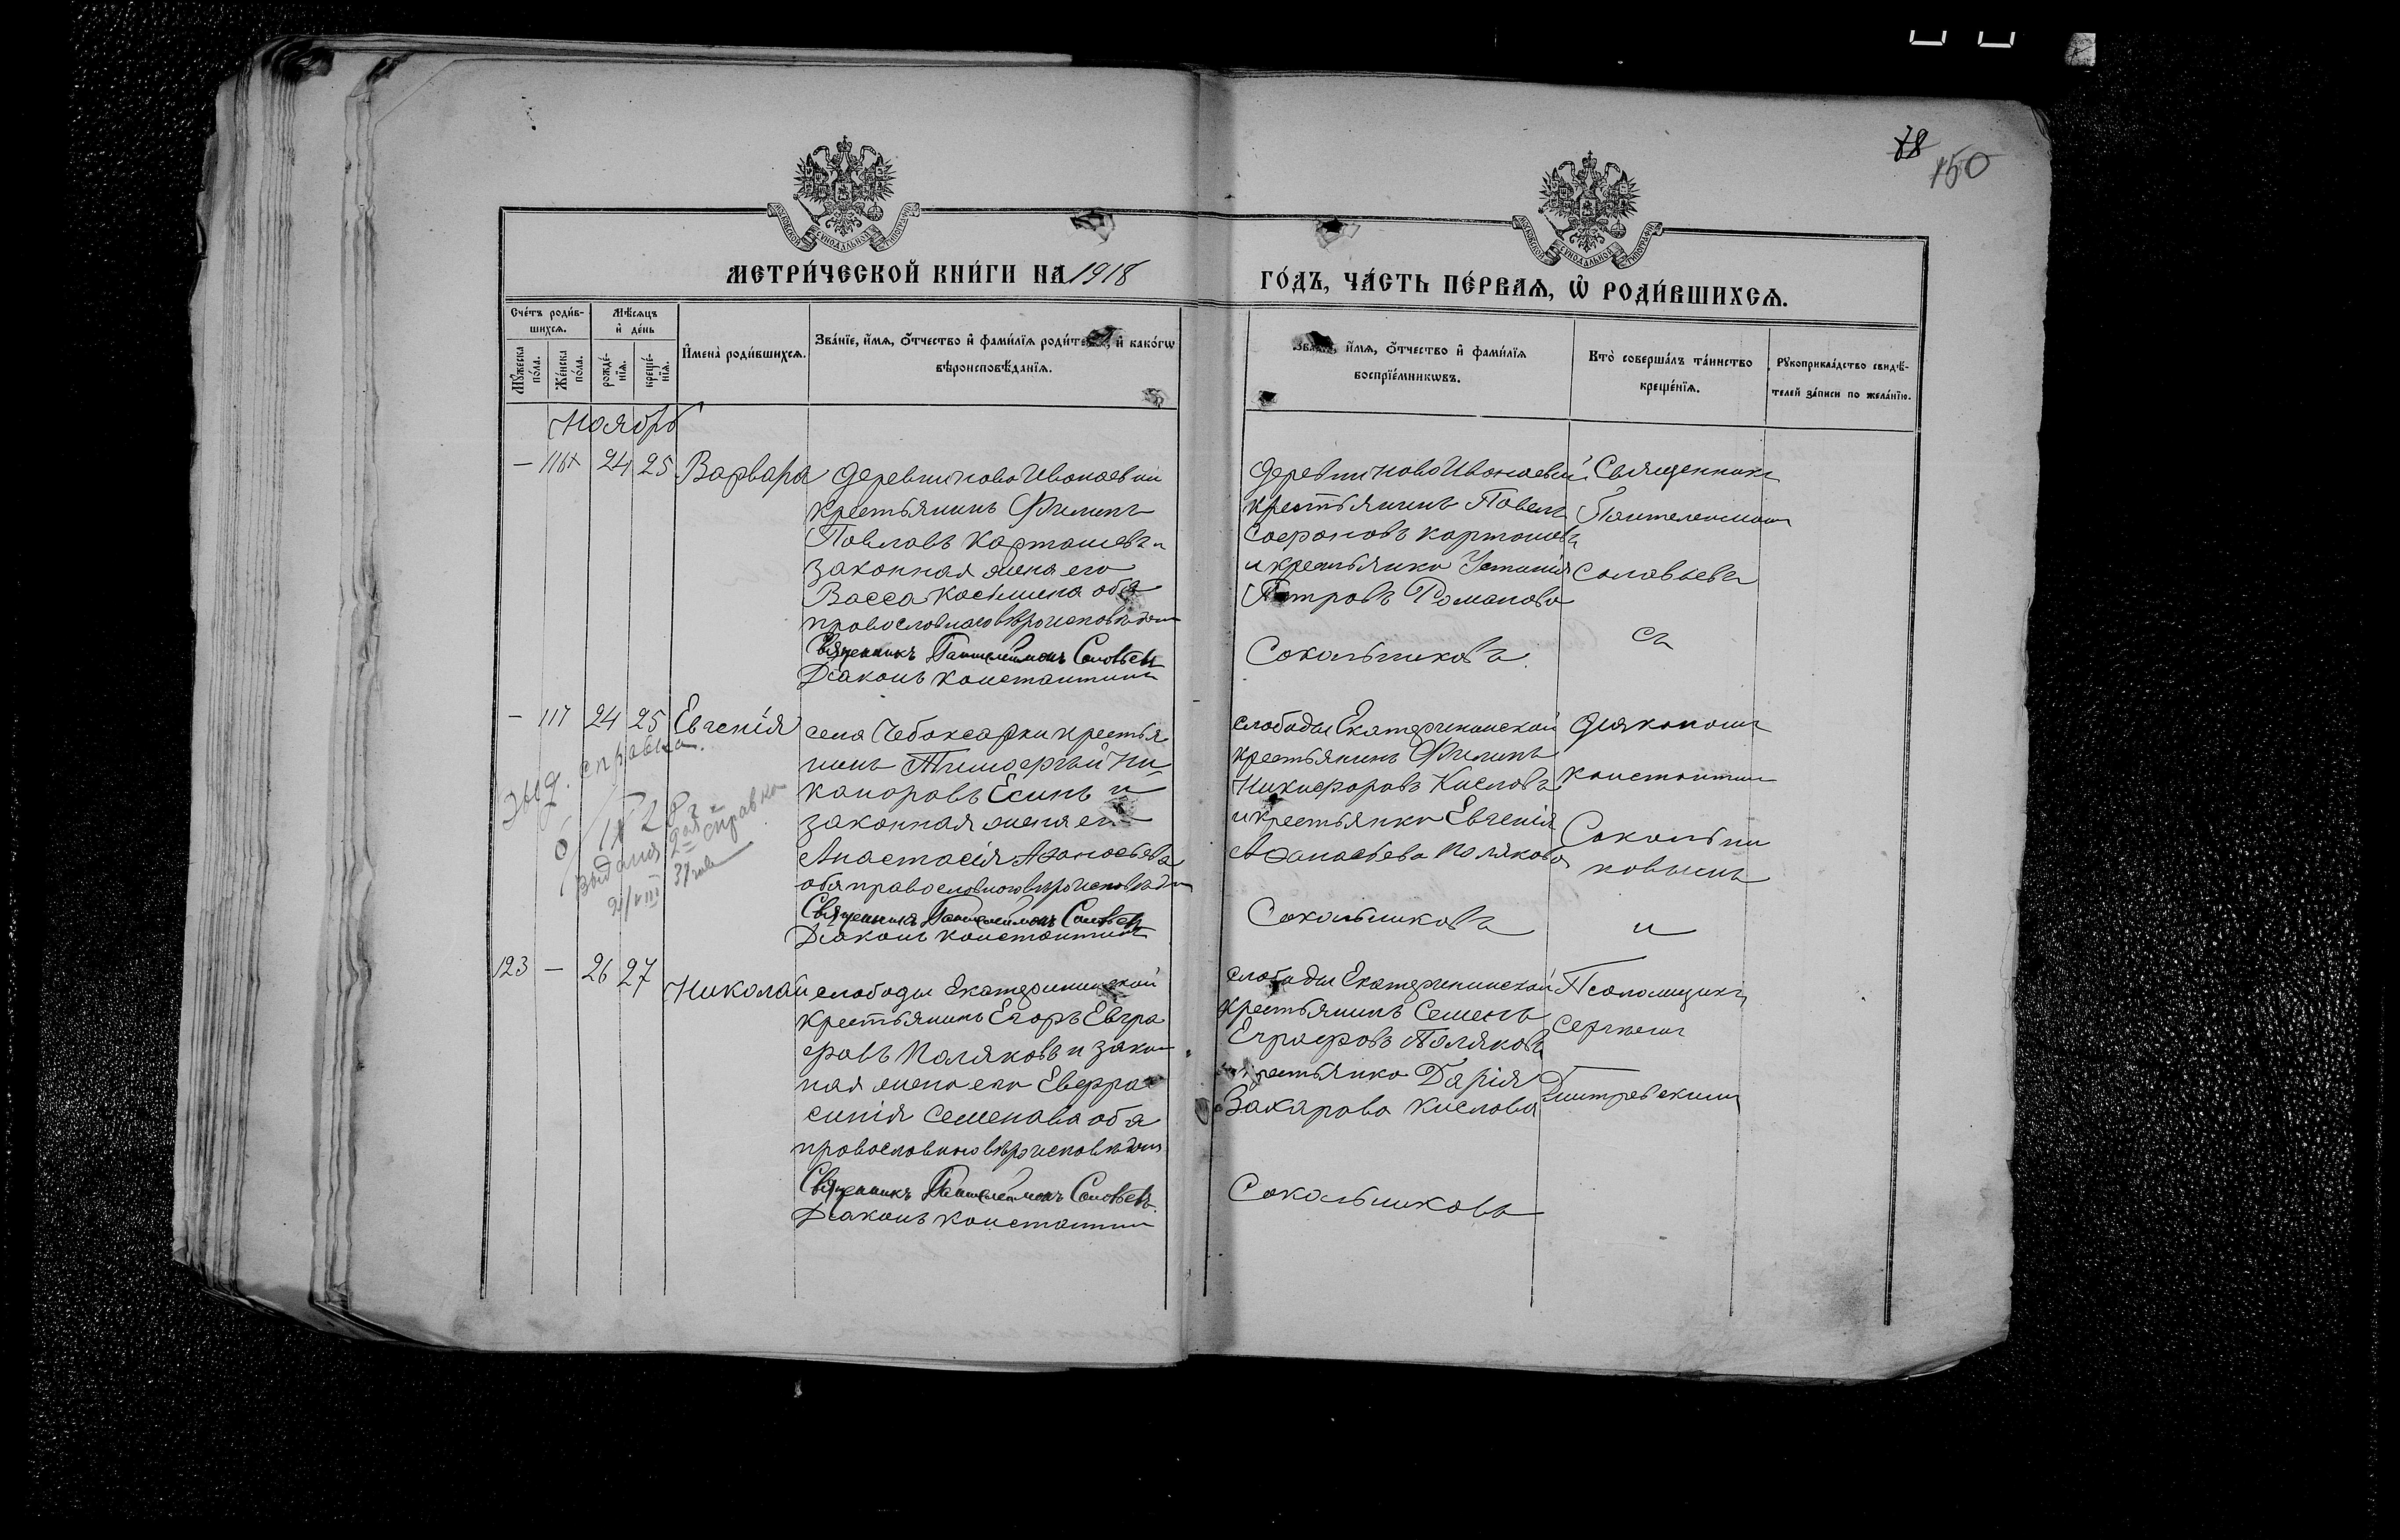 78
150
МОСКОВСКОЙ СѴНОДАЛЬНОЙ ТИПОГРАФІИ
МОСКОВСКОЙ СѴНОДАЛЬНОЙ ТИПОГРАФІИ
МЕТРИ́ЧЕСКОЙ КНИ́ГИ НА 1918
ГО́ДЪ, ЧА́СТЬ ПЕ́РВАѦ, Ѡ҆ РОДИ́ВШИХСѦ.
Сче́тъ роди́в-
шихсѧ.
Мꙋ́жеска
по́ла.
Же́нска
по́ла.
Мѣ́сѧцъ
и҆ де́нь
рожде́-
нїѧ.
креще́-
нїѧ.
И҆мена̀ роди́вшихсѧ.
Зва́нїе, и҆́мѧ, ѻ҆́тчество и҆ фами́лїѧ роди́телей, и҆ како́гѡ
вѣроисповѣ́данїѧ.
Зва́нїе, и҆́мѧ, ѻ҆́тчество и҆ фами́лїѧ
воспрїе́мникѡвъ.
Кто̀ соверша́лъ та́инство
креще́нїѧ.
Рꙋкоприкла́дство свидѣ́-
телей за́писи по жела́нїю.
Ноябрь
— 116 24 25 Варвара
деревни ново Ивонаевки
крестьянинъ Филиппъ
Павловъ Карташевъ и
законная жена его
Васса Косьмина оба
православнаго вѣроисповѣдан
Священникъ Пантелеимонъ Соловьевъ
Діаконъ Константинъ
деревни ново Ивонаевки
крестьянинъ Павелъ
Софроновъ Карташевъ
и крестьянка Устинія
Петрова Романова
Сокольниковъ
Священникъ
Пантелеимонъ
Соловьевъ
съ
— 117 24 25 Евгенія
села Чебоксарки крестья
нинъ Тимофей Ни
каноровъ Есинъ и
законная жена его
Анастасія Афанасьева
оба православнаго вѣроисповѣдан
Священникъ Пантелеимонъ Соловьевъ
Діаконъ Константинъ
слободы Екатерининской
крестьянинъ Филиппъ
Никифоровъ Кисловъ
и крестьянка Евгенія
Афанасьева Полякова
Сокольниковъ
діякономъ
Константин
Сокольни
ковымъ
и
выд. справка.
6/IX 28 г.
выдана 2ая справка
21/VIII 37 года
123 — 26 27 Николай
слободы Екатерининской
крестьянинъ Егоръ Евгра
фовъ Поляковъ и закон
ная жена его Евфра
синія Семенова оба
православнаго вѣроисповѣдан
Священникъ Пантелеимонъ Соловьевъ
Діаконъ Константин
слободы Екатерининской
крестьянинъ Семенъ
Евграфовъ Поляковъ
и крестьянка Дарія
Захарова Кислова
Сокольниковъ
Псаломщикъ
Сергѣемъ
Дмитревскимъ